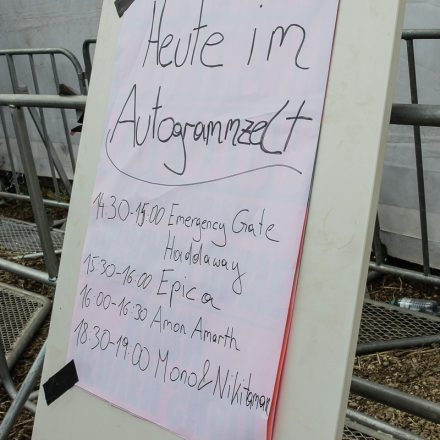 Heute im
Autogrammzelt
14.30-15.00 Emergency Gate
Haddaway
15:30-16:00 Epica
16:00-16:30 Amon Amarth
18:30-19:00 Mono & Nikitaman